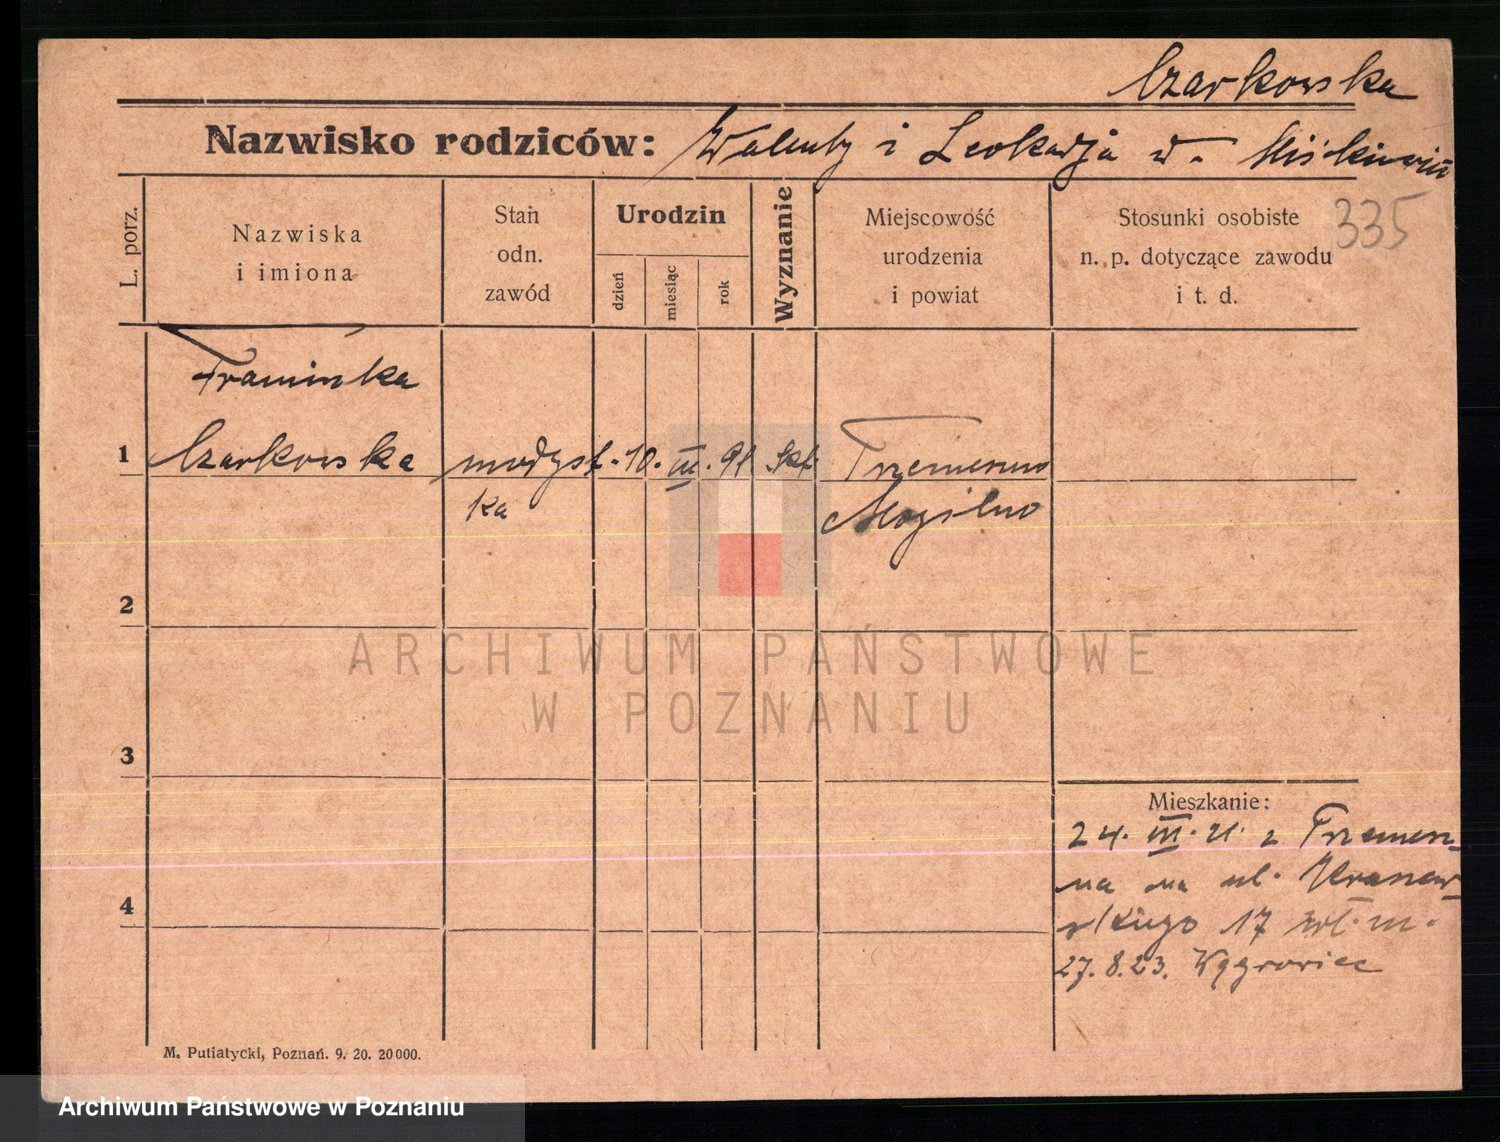 Czarkowska
Nazwisko rodziców: Walenty i Leokadja
335
L. porz.
Nazwiska
i imiona
Stan
odn.
zawód
Urodzin
dzień
miesiąc
rok
Wyznanie
Miejscowość
urodzenia
i powiat
Stosunki osobiste
n. p. dotyczące zawodu
i t. d.
1
Czarkowska modyst- 10. III. 91 kat Trzemeszno
ka Mogilno
2
3
4
Mieszkanie:
24. III. 21. z Trzemesz-
na na ul.
17
27.8.23. Wągrowiec
M. Putiatycki, Poznań. 9. 20. 20000.
ARCHIWUM PAŃSTWOWE
W POZNANIU
Archiwum Państwowe w Poznaniu